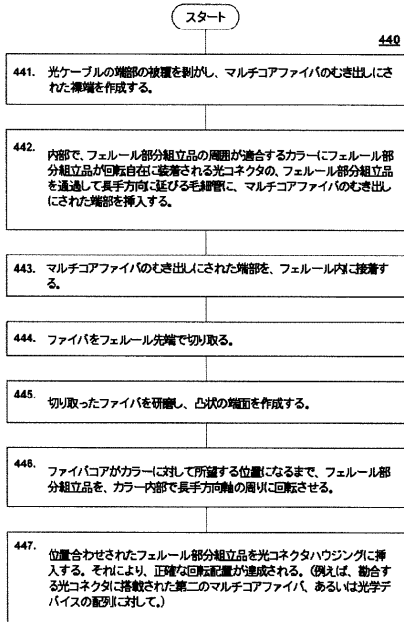 スタート
440
441. 光ケーブルの端部の被覆を剥がし、マルチコアファイバのむき出しにさ
れた裸端を作成する。
442. 内部で、フェルール部分組立品の周囲が適合するカラーにフェルール部
分組立品が回転自在に装着される光コネクタの、フェルール部分組立品
を通過して長手方向に延びる毛細管に、マルチコアファイバのむき出し
にされた端部を挿入する。
443. マルチコアファイバのむき出しにされた端部を、フェルール内に接着す
る。
444. ファイバをフェルール先端で切り取る。
445. 切り取ったファイバを研磨し、凸状の端面を作成する。
446. ファイバコアがカラーに対して所望する位置になるまで、フェルール部
分組立品を、カラー内部で長手方向軸の周りに回転させる。
447. 位置合わせされたフェルール部分組立品を光コネクタハウジングに挿
入する。それにより、正確な回転配置が達成される。(例えば、勘合す
る光コネクタに搭載された第二のマルチコアファイバ、あるいは光学デ
バイスの配列に対して。)